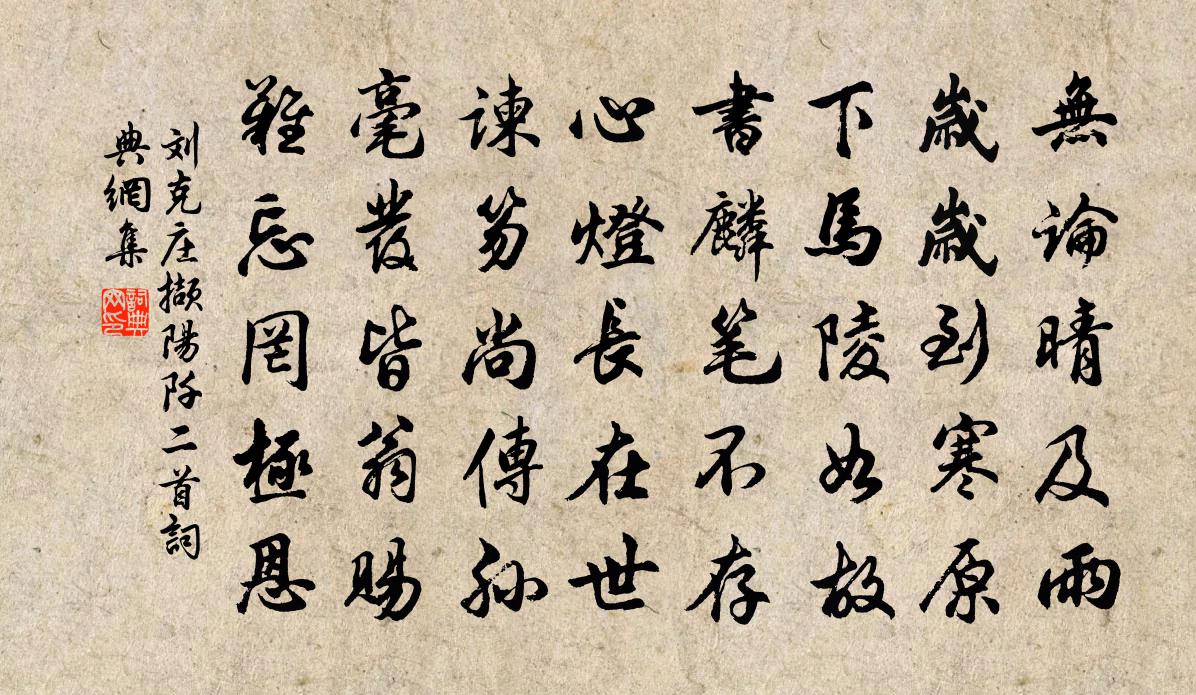 無論晴及雨
歲歲到寒原
下馬陵如故
書麟笔不存
心燈長在世
諫笏尚傳孫
毫發皆翁賜
難忘罔極恩
刘克庄擷陽阡二首詞
典網集
詞典網印